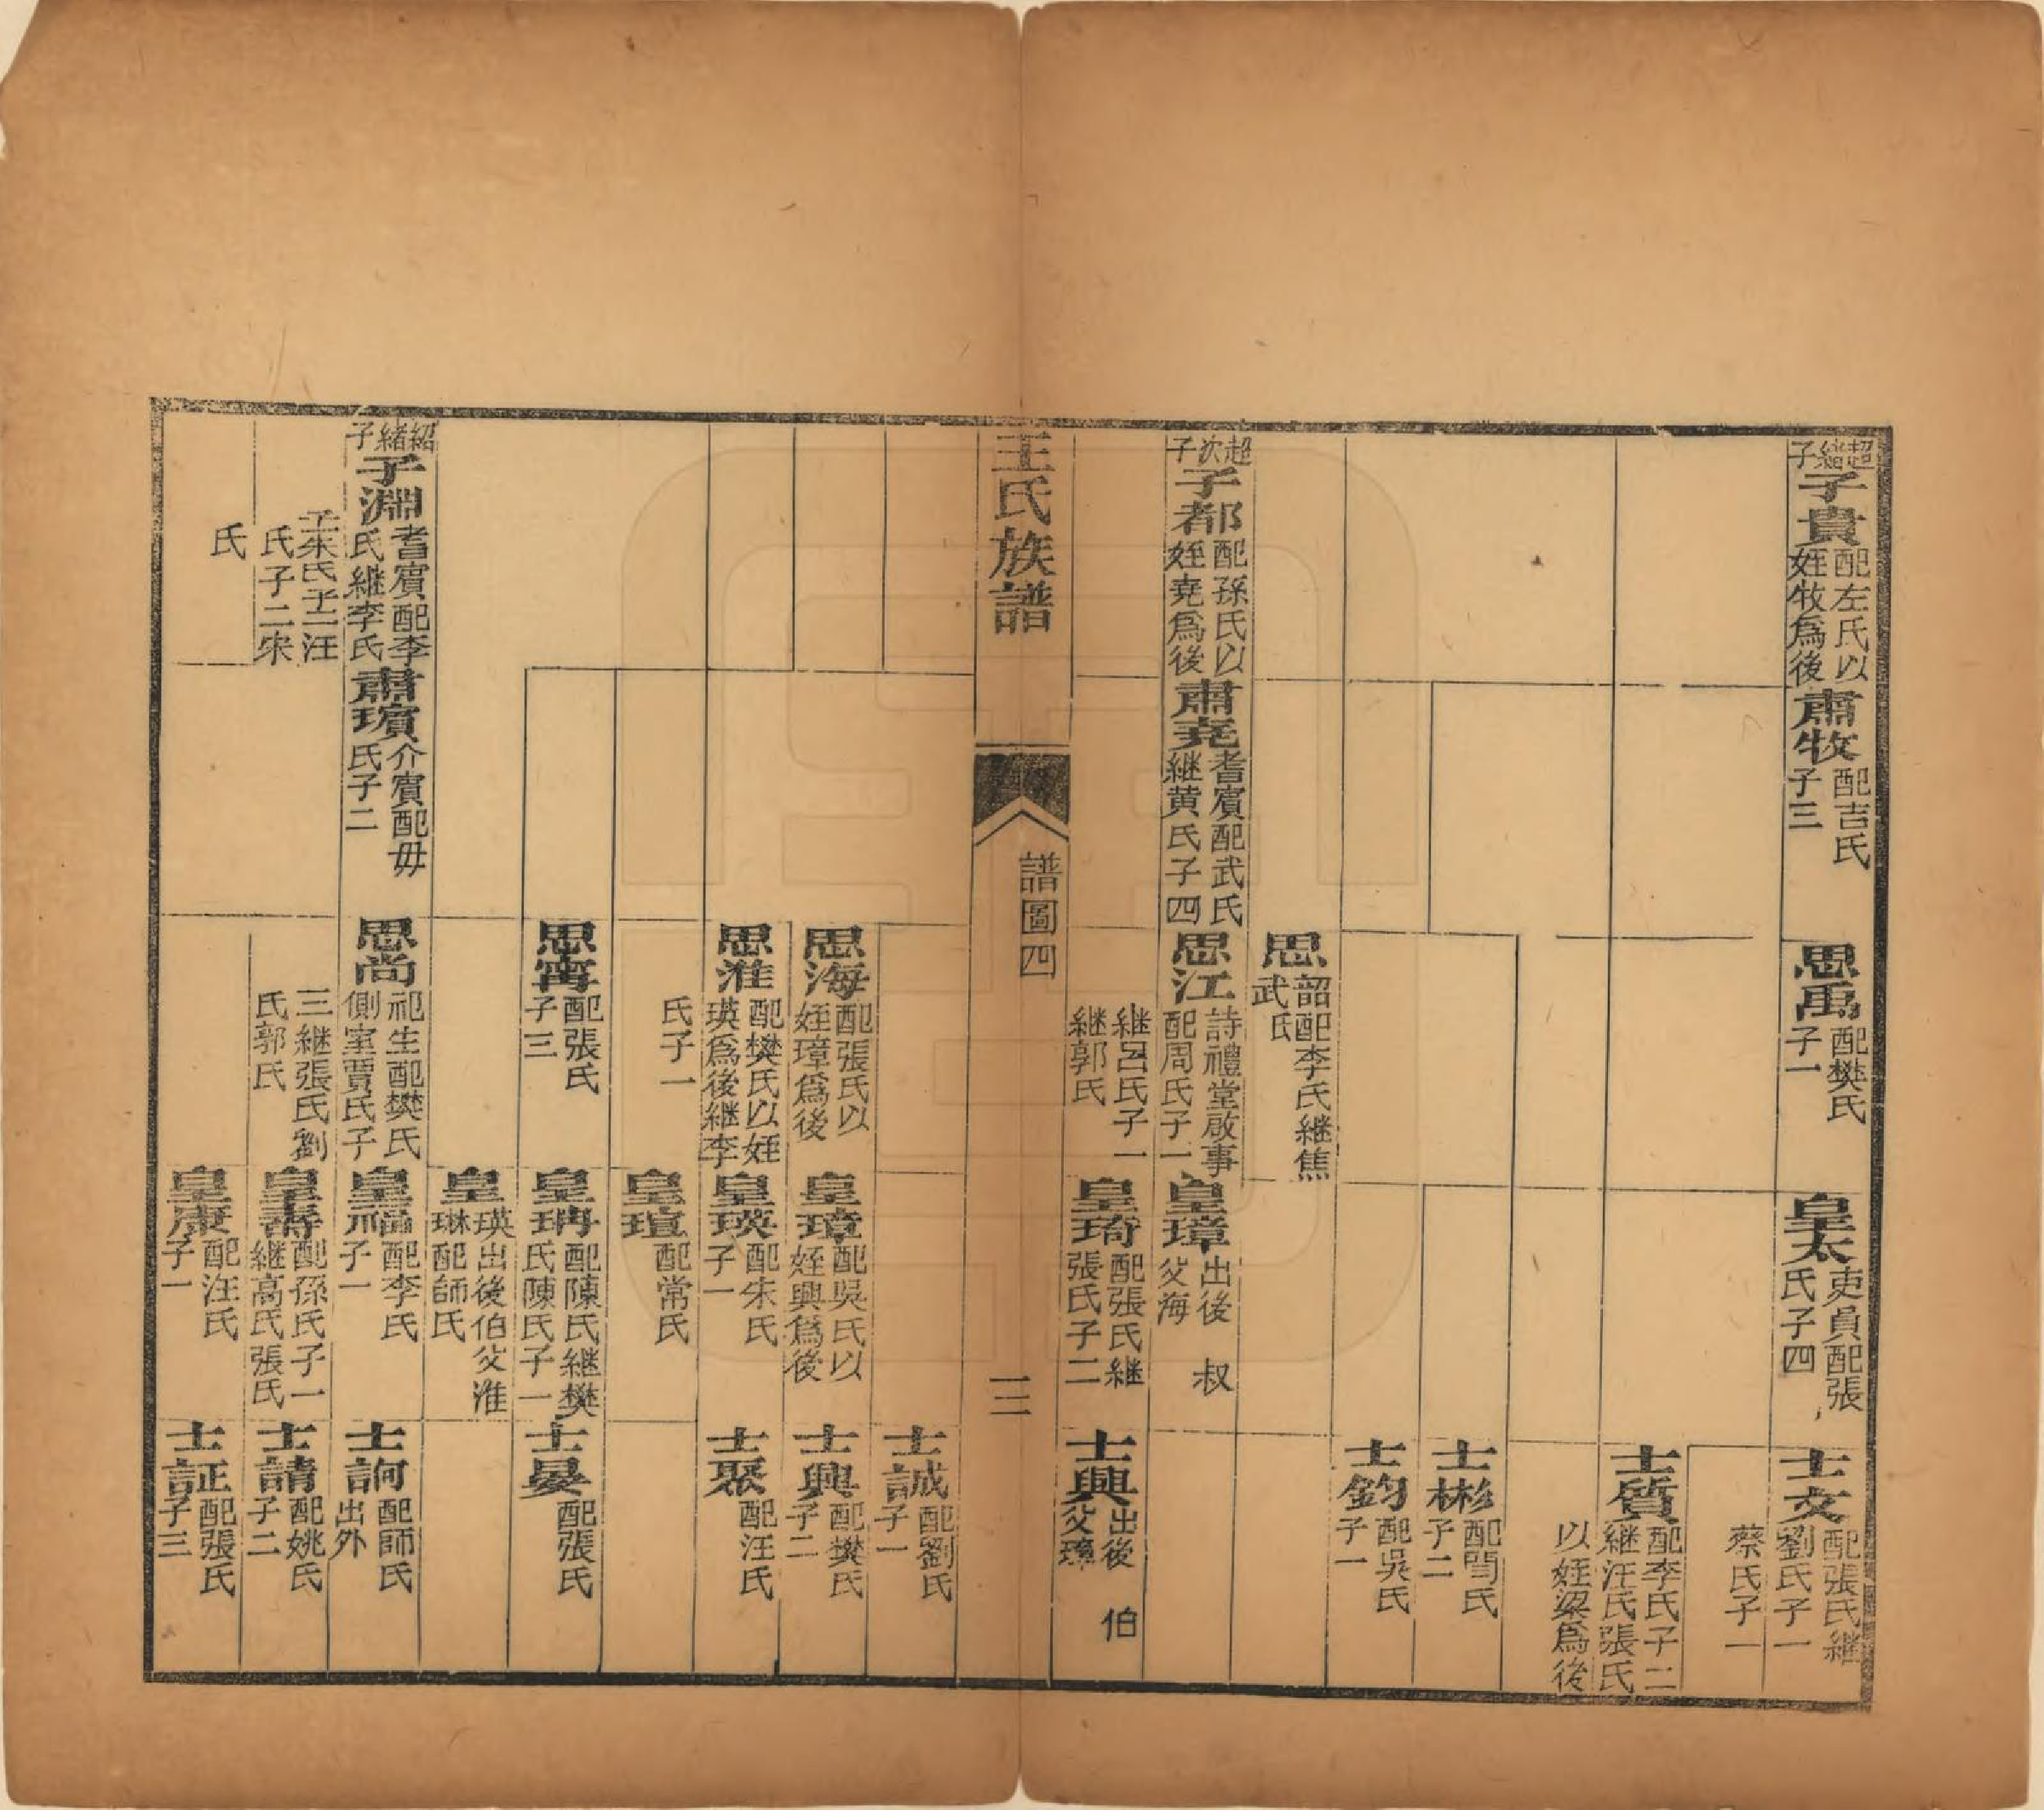 超繼子
子貴 配左氏以姪牧爲後
肅牧 配吉氏子三
思禹 配樊氏子一
皇太 吏員配張氏子四
士文 配張氏繼劉氏子一
蔡氏子一
士質 配李氏子二繼汪氏張氏
以姪梁爲後
士彬 配閆氏子二
士鈞 配吳氏子一
思韶 配李氏繼焦武氏
超次子
子都 配孫氏以姪堯爲後
肅堯 耆賓配武氏繼黄氏子四
思江 詩禮堂啟事配周氏子一
皇璋 出後叔父海
繼呂氏子一繼郭氏
皇琦 配張氏繼張氏子二
士興 出後伯父璋
王氏族譜
譜圖四
三
士誠 配劉氏子一
思海 配張氏以姪璋爲後
皇璋 配吳氏以姪興爲後
士興 配樊氏子二
思淮 配樊氏以姪瑛爲後繼李
皇瑛 配朱氏子一
士聚 配汪氏
氏子一
皇瑄 配常氏
思甯 配張氏子三
皇珃 配陳氏繼樊氏陳氏子一
士晏 配張氏
皇瑛 出後伯父淮
琳 配師氏
紹緒子
子淵 耆賓配李氏繼李氏
肅璸 介賓配毋氏子二
思尚 祀生配樊氏側室賈氏子
皇福 配李氏子一
士訶 配師氏出外
子朱氏子一汪氏子二宋
三繼張氏劉氏郭氏
皇壽 配孫氏子一繼高氏張氏
士請 配姚氏子二
氏
皇康 配汪氏子一
士証 配張氏子三